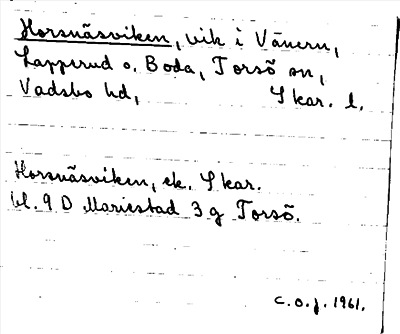 Horsnäsviken, vik i Vänern,
Lapperud o. Boda, Torsö sn,
Vadsbo hd, Skar. l.
Horsnäsviken, ek. Skar.
bl. 9 D Mariestad 3 g Torsö.
C.O.J. 1961.